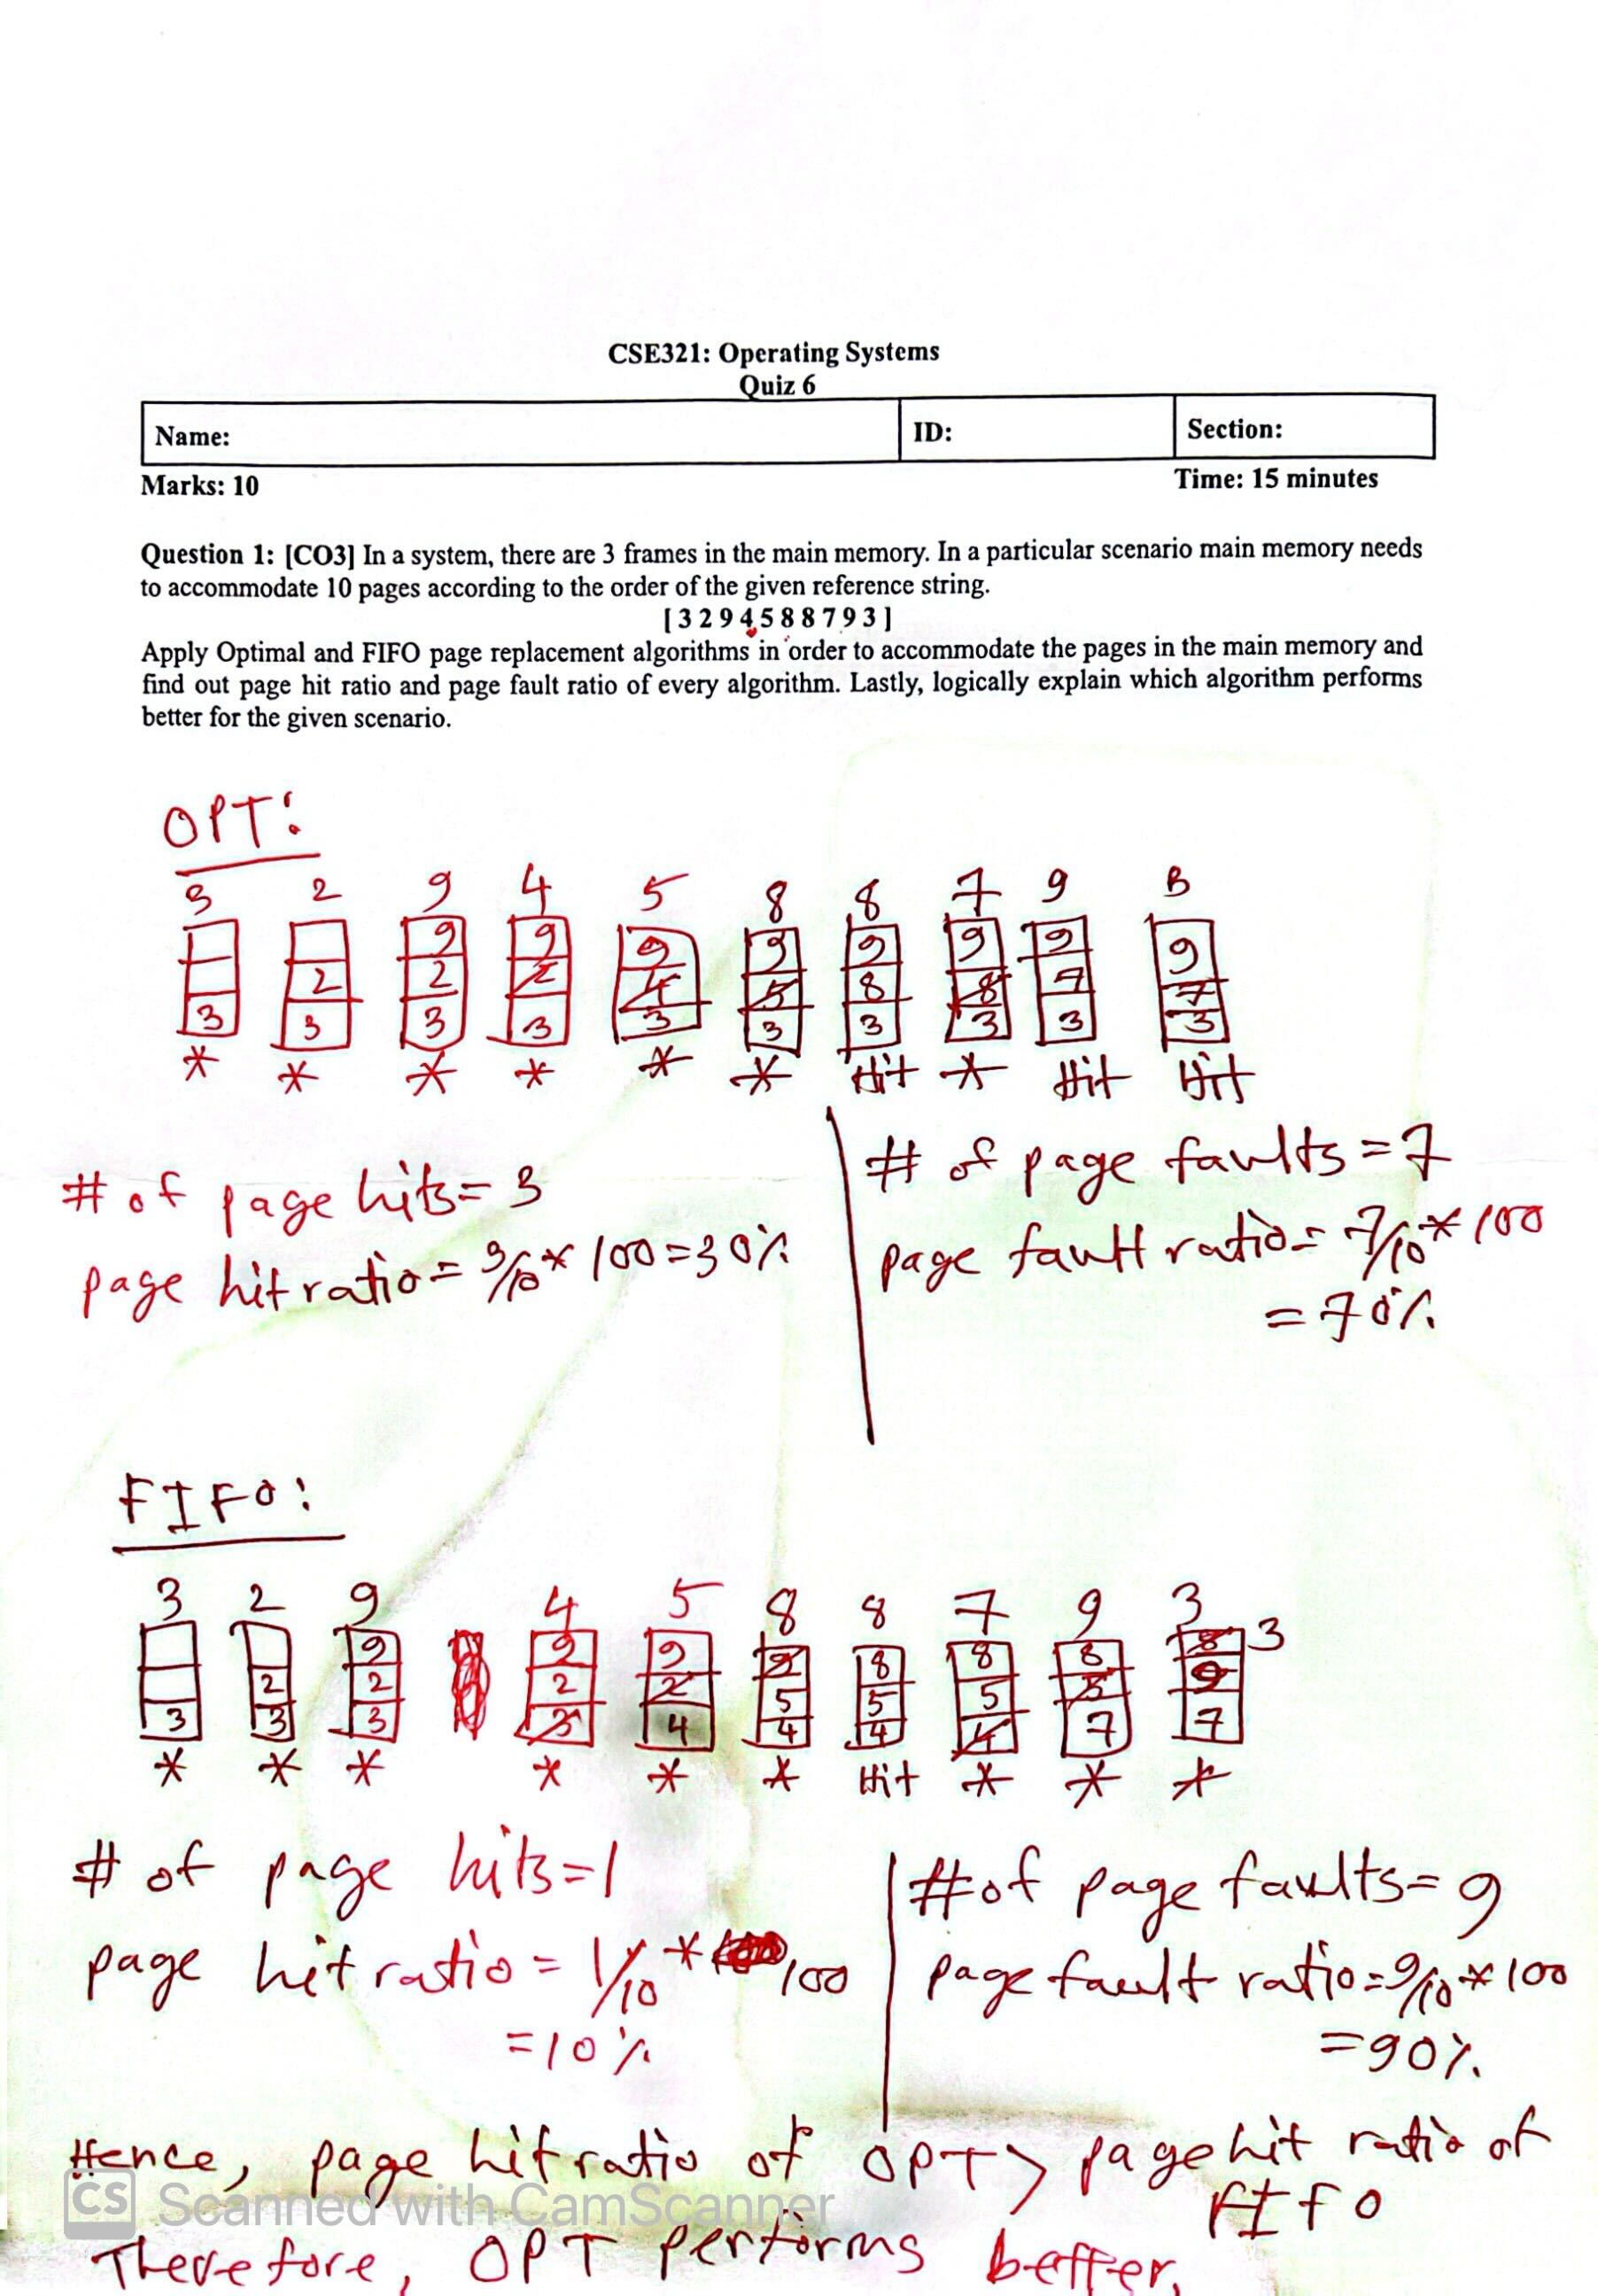 CSE321: Operating Systems
Quiz 6
Name: ID: Section:
Marks: 10 Time: 15 minutes
Question 1: [CO3] In a system, there are 3 frames in the main memory. In a particular scenario main memory needs
to accommodate 10 pages according to the order of the given reference string.
[ 3 2 9 4 5 8 8 7 9 3 ]
Apply Optimal and FIFO page replacement algorithms in order to accommodate the pages in the main memory and
find out page hit ratio and page fault ratio of every algorithm. Lastly, logically explain which algorithm performs
better for the given scenario.
OPT:
3 2 9 4 5 8 8 7 9 3
9 9 9 9 9 9 9 9
2 2 2 4 5 8 8 7 7
3 3 3 3 3 3 3 3 3 3
* * * * * * Hit * Hit Hit
# of page hits = 3
page hit ratio = 3/10 * 100 = 30%
# of page faults = 7
page fault ratio = 7/10 * 100
= 70%
FIFO:
3 2 9 4 5 8 8 7 9 3
9 9 9 9 8 8 8 8 3
2 2 2 2 5 5 5 5 9
3 3 3 3 4 4 4 4 7 7
* * * * * * Hit * * *
# of page hits = 1
page hit ratio = 1/10 * 100
= 10%
# of page faults = 9
page fault ratio = 9/10 * 100
= 90%
Hence, page hit ratio of OPT > page hit ratio of
FIFO
CS Scanned with CamScanner
Therefore, OPT performs better.